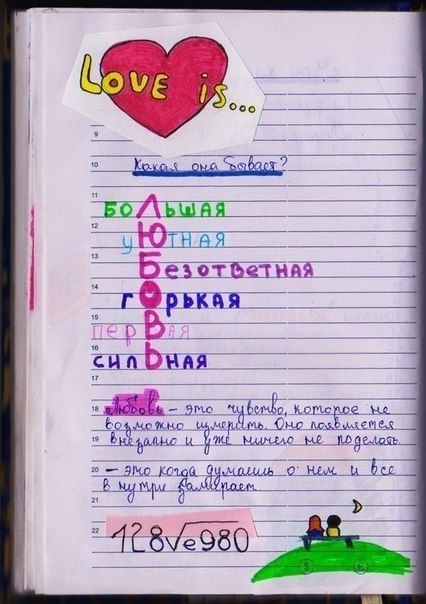 LOVE is...
9
10 Какая она бывает?
11
БОЛЬШАЯ
12
уЮТНАЯ
13
Безответная
14
гОрькая
15
перВая
16
силЬная
17
18 Любовь – это чувство, которое не
возможно измерить. Оно появляется
19 внезапно и уже ничего не поделать.
20 – это когда думаешь о нем и все
в нутри замирает.
21
22 128√e980